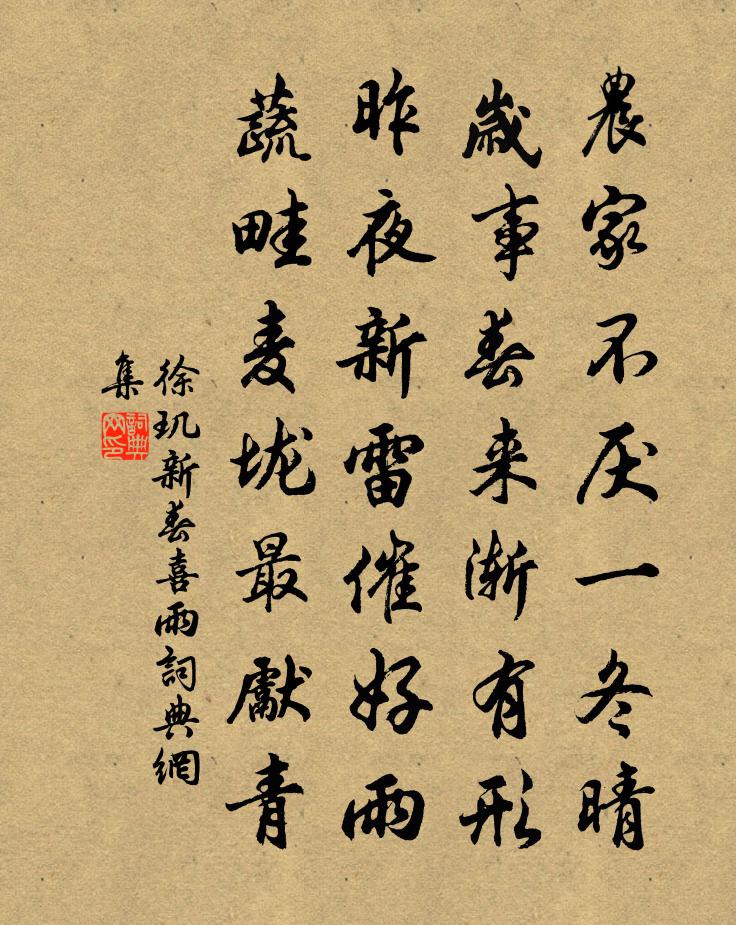 農家不厌一冬晴
歲事春来渐有形
昨夜新雷催好雨
蔬畦麦垅最獻青
徐玑新春喜雨詞典網
集
詞典網印